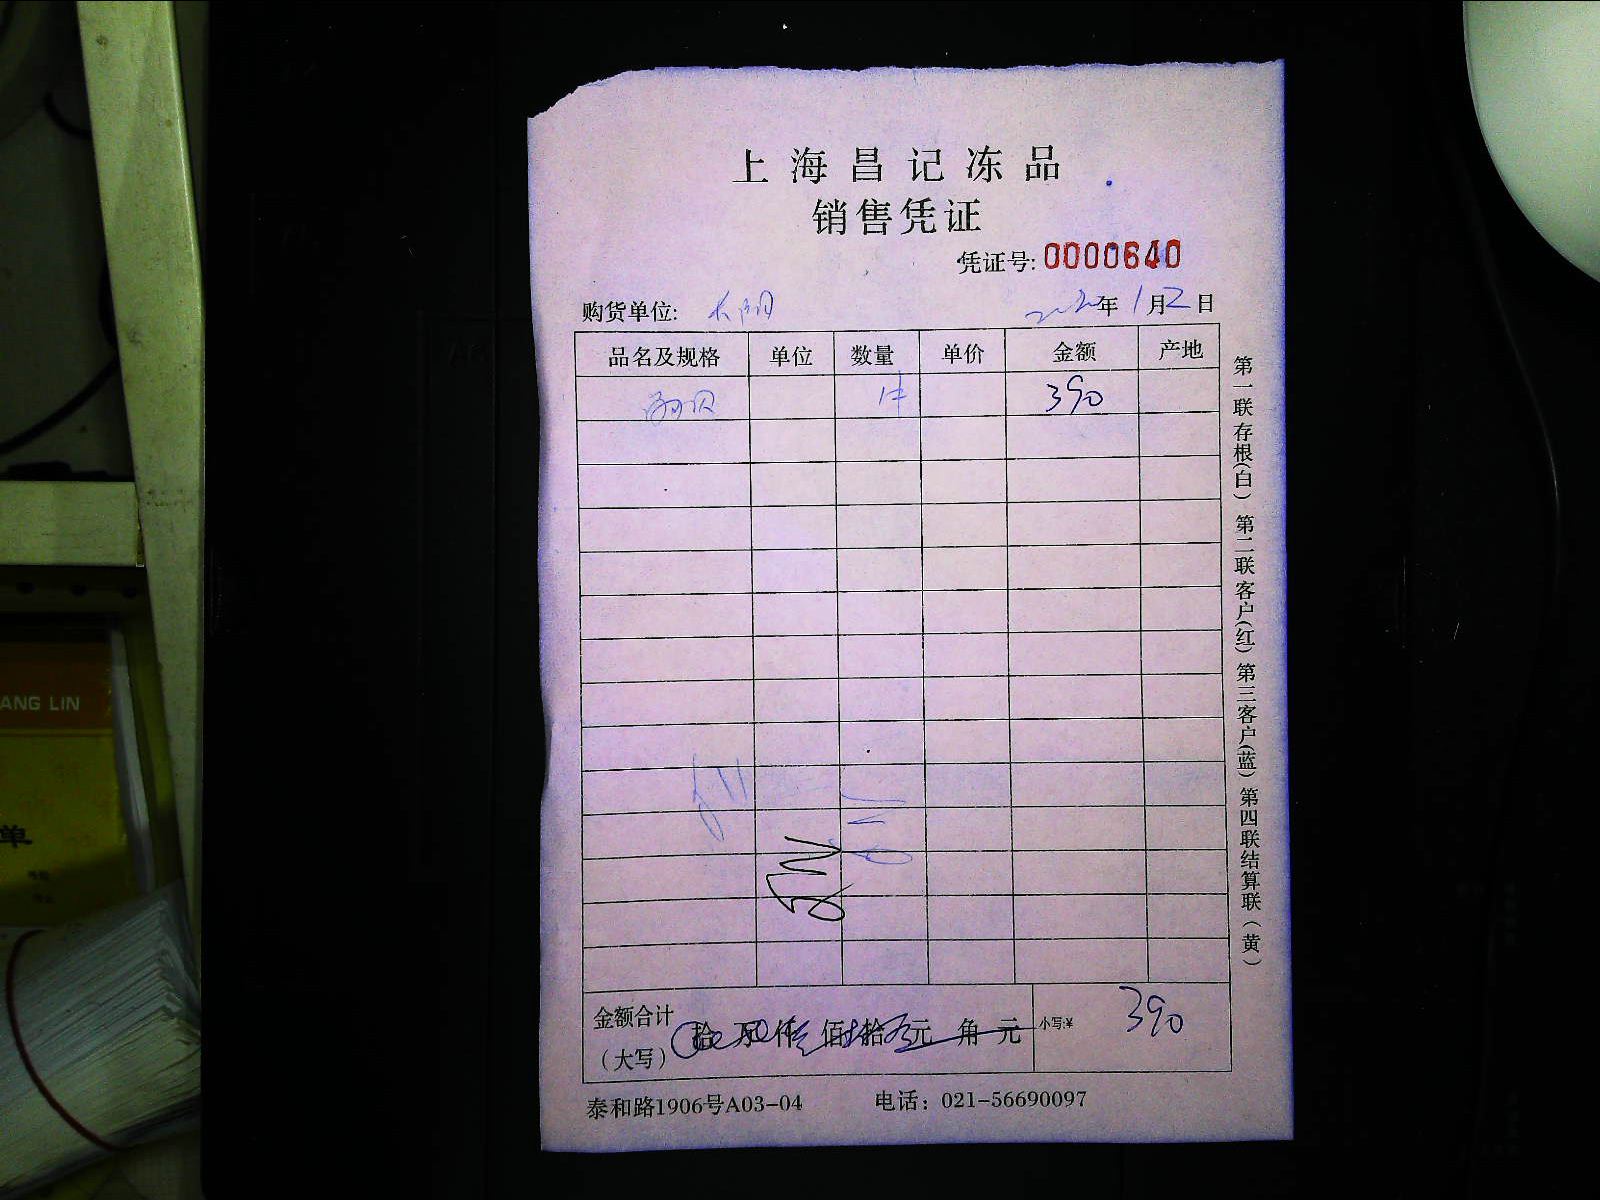 上海昌记冻品
销售凭证
凭证号: 0000640
购货单位: 长阳 年 1月2日
品名及规格 单位 数量 单价 金额 产地
1件 390
金额合计
(大写) 拾 万 仟 佰 拾 元 角 元 小写:¥ 390
泰和路1906号A03-04 电话: 021-56690097
第一联存根(白) 第二联客户(红) 第三客户(蓝) 第四联结算联(黄)
ANG LIN
单